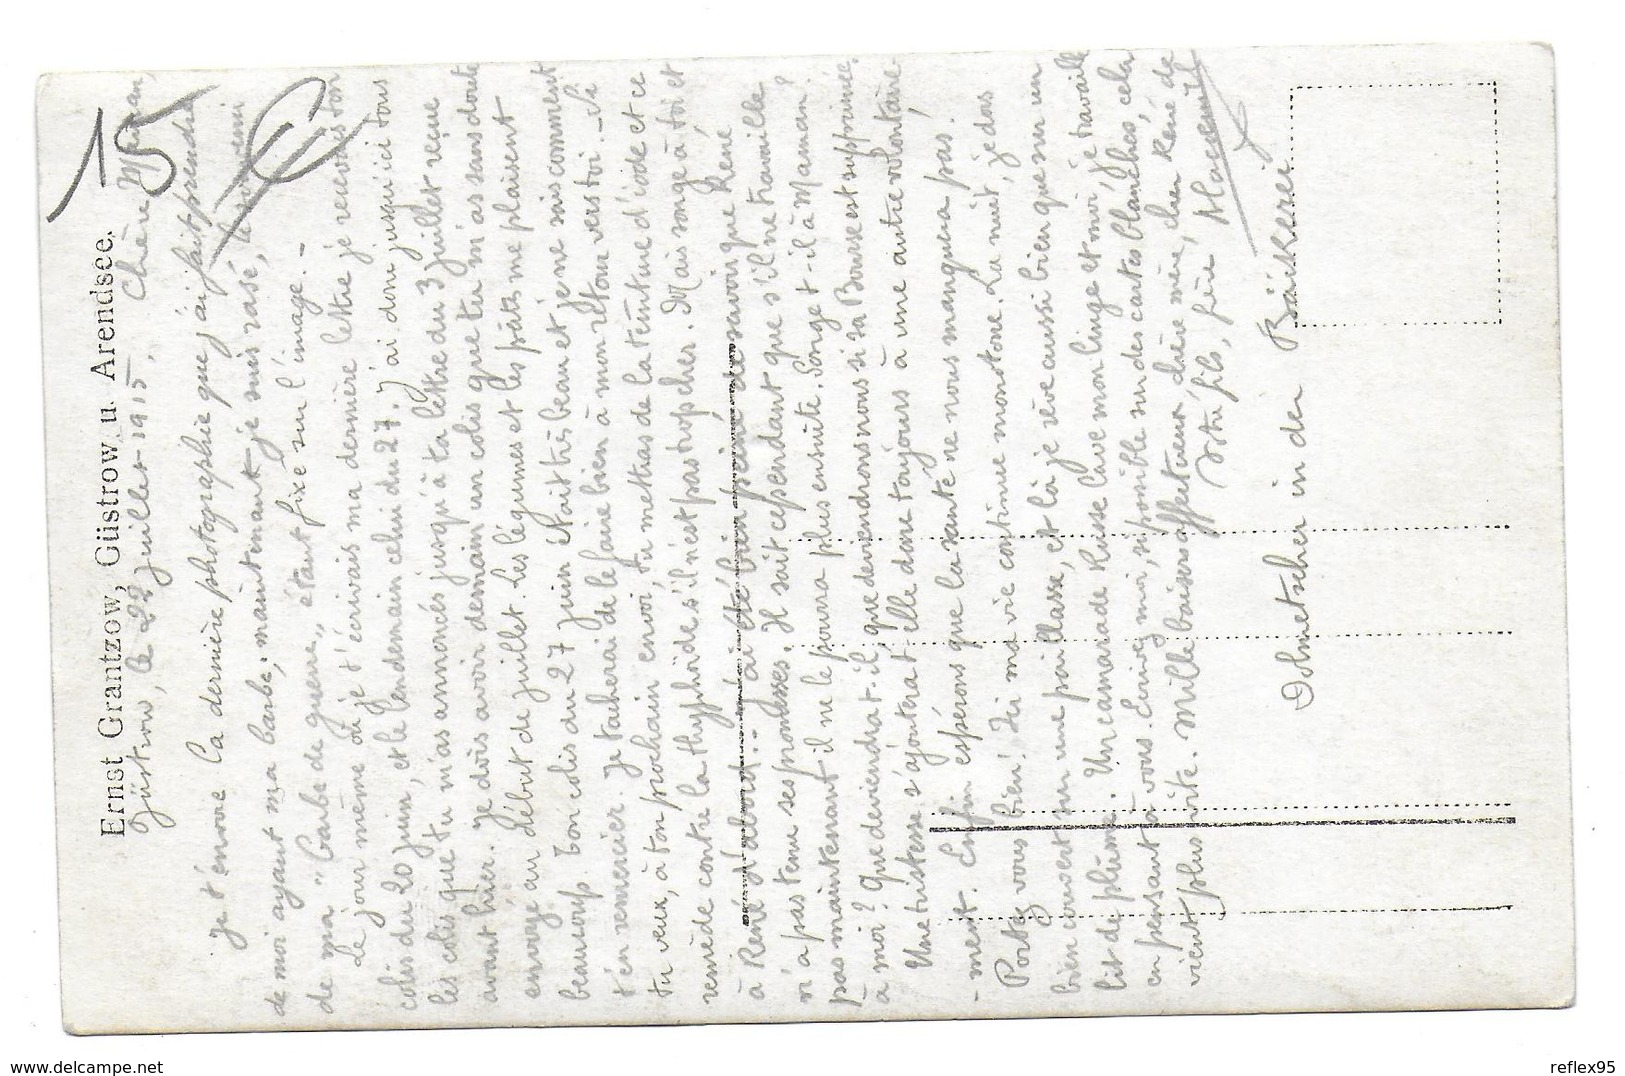 Ernst Grantzow, Güstrow u. Arendsee.
15 €
Güstrow, le 22 juillet 1915. Chère Maman,
Je t'envoie la dernière photographie que j'ai fait prendre
de moi ayant ma barbe; maintenant je suis rasé, le souvenir
de ma "barbe de guerre" étant fixé sur l'image. -
Le jour même où je t'écrivais ma dernière lettre je recevais ton
colis du 20 juin, et le lendemain celui du 27. J'ai donc jusqu'ici tous
les colis que tu m'as annoncés jusqu'à ta lettre du 3 juillet reçue
avant hier. Je dois avoir demain un colis que tu m'as sans doute
envoyé au début de juillet. Les légumes et les pâtés me plaisent
beaucoup. Ton colis du 27 juin était très beau et je ne sais comment
t'en remercier. Je tacherai de le faire bien à mon retour vers toi. - Si
tu veux, à ton prochain envoi, tu mettras de la teinture d'iode et ce
remède contre la thyphoïde s'il n'est pas trop cher. Mais songe à toi et
à René d'abord. - J'ai été bien peiné de savoir que René
n'a pas tenu ses promesses. Il sait cependant que s'il ne travaille
pas maintenant il ne le pourra plus ensuite. Songe-t-il à Maman?
à moi? Que deviendrat-il, que deviendrons nous si sa Bourse est supprimée.
Une tristesse s'ajouterat-elle donc toujours à une autre volontaire
-ment. Enfin espérons que la santé ne nous manquera pas.
Portez vous bien! Ici ma vie continue monotone. La nuit, je dors
bien couché sur une paillasse, et là je rêve aussi bien que sur un
lit de plume. Un camarade Russe lave mon linge et moi, je travaille
en pensant à vous. Écrivez moi, si possible sur des cartes blanches, cela
vient plus vite. Mille baisers affectueux chère mère, cher René de
votre fils, frère
Dolmetscher in der Bäckerei
reflex95
www.delcampe.net